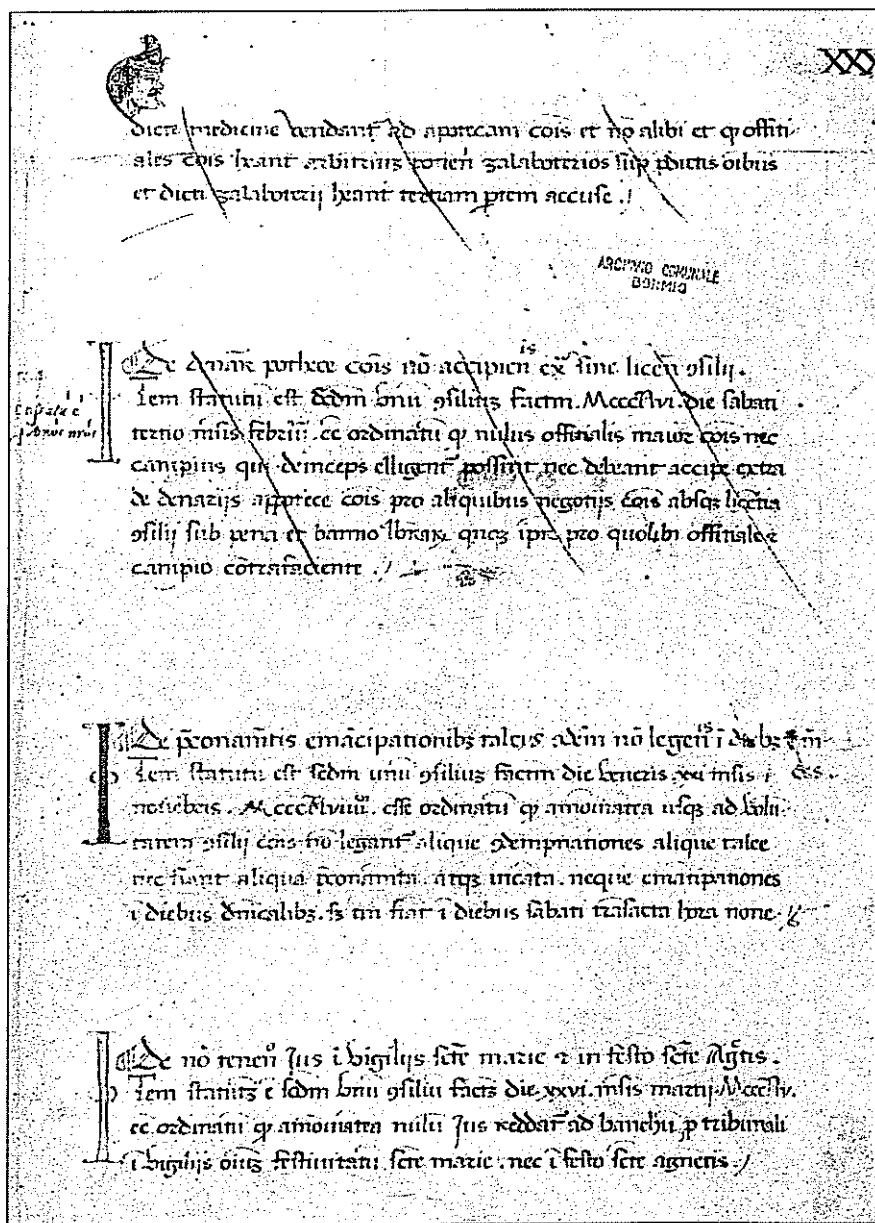 XXX
dicte medicine vendant᷑ ad apotecam cōis et nō alibi et ꝙ offiti-
ales cōis h̄eant arbitriuȝ ponēn galaboterios suꝑ p̄dictis oībus
et dicti galaboterij h̄eant tertiam ꝑtem accuse ./
ARCHIVIO COMUNALE
BORMIO
De denar̄ pothece cōis nō accipien̄is ex̄ᵃ sine licen̄ ꝯsilij .
Item statutū est sc̄dm vnū ꝯsiliuȝ factm̄ . Mcccclvi . die sabati
tertio m̄sis febr̄ij . cē ordinatū ꝙ nulus offitialis maior cōis nec
canipius qui deinceps elligent᷑ possint nec debeant accipe extra
de denarijs appotece cōis pro aliquibus negotijs cōis absqȝ licētia
ꝯsilij sub pena et banno lbrarꝝ quīqȝ īpr̄ pro quolibȝ offitiale ⁊
canipio cōtrafaciente ./
De p̄conam̄tis emācipationibȝ taleis ꝯdēn nō legen̄is ī diebȝ d̄nī
cis .
Item statutū est sc̄dm unū ꝯsiliuȝ factm̄ die veneris xxi m̄sis
novēbris . Mcccclviiii . esse ordinatū ꝙ amōmatea usqȝ ad volū-
tatem ꝯsilij cōis nō legant᷑ alique ꝯdempnationes alique talee
nec fiant aliqua p̄conam̄ta . atqȝ incāta . neque emancipationes
ī diebus dn̄icalibȝ . sȝ tm̄ fiāt ī diebus sabati trāsacta hora none .
De nō tenen̄ Jus ī vigilijs sc̄te marie ⁊ in festo sc̄te Agn̄tis .
Item statutȝ ē sc̄dm vnū ꝯsiliū factȝ die xxvi . m̄sis martij Mcccclv .
cē ordinatū ꝙ amōmatea nulū Jus reddat᷑ ad banchū ꝓ tribunali
ī vigilijs oīuȝ festivitatū sc̄te marie . nec ī festo sc̄te agnetis ./